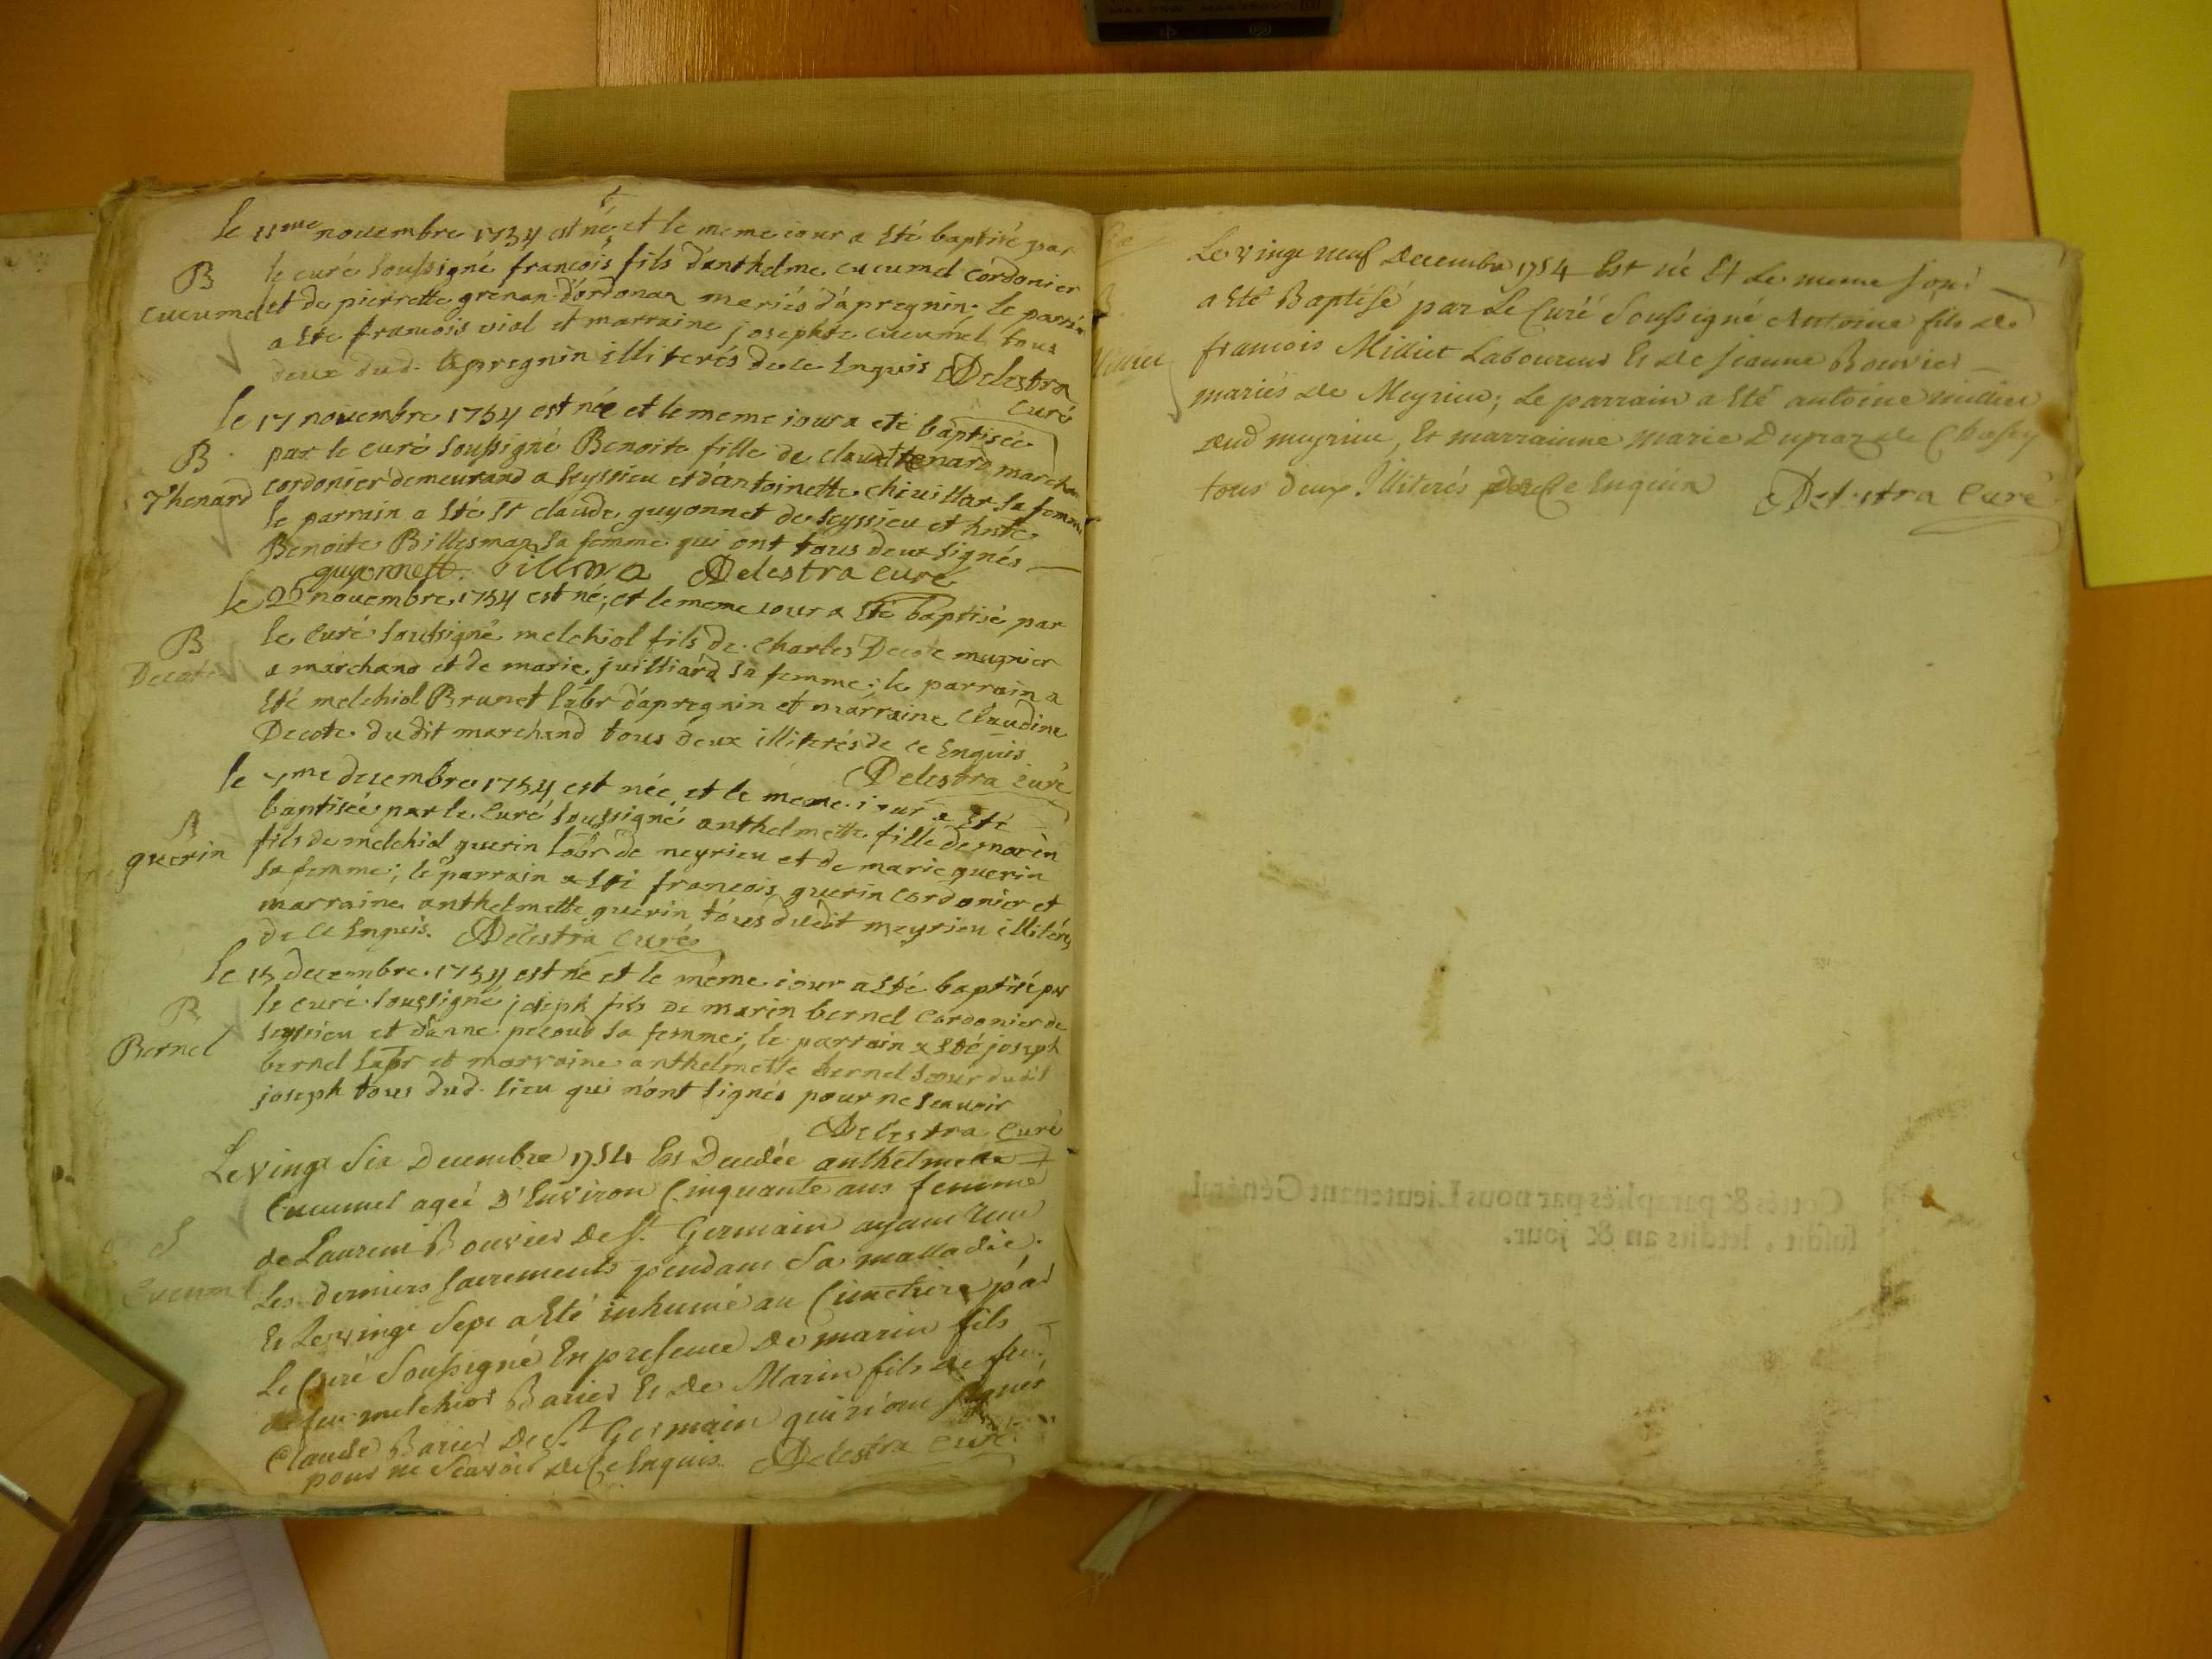 Le 11me novembre 1754 est né; et le meme iour a Eté baptisé par
B
le curé soussigné francois fils d'anthelme cucumel cordonier
cucumel
et de pierrette grenan d'ordonan mariés d'apregnin; le parrin
a Eté francois viol et marraine josephte cucumel tous
deux dud. apregnin illiterés de ce Enquis Delestra
curé
le 17 novembre 1754 est née et le meme iour a eté baptisée
B
par le curé soussigné Benoite fille de claude thenard marchan
Thenard
cordonier demeurand a Seyssieu et d'antoinette chivillar sa femme
le parrain a Eté Sr claude guyonnet de seyssieu et
Benoite Billesmaz sa femme qui ont tous deux signés
guyonnett. Delestra curé
le 26 novembre 1754 est né; et le meme iour a Eté baptisé par
B
le curé soussigné melchiol fils de charles Decote mugnier
Decote
a marchand et de marie juilliard sa femme; le parrain a
Eté melchiol Brunet labr d'apregnin et marraine Claudine
Decote du dit marchand tous deux illiterés de ce Enquis
Delestra curé
le me decembre 1754 est née et le meme iour a Eté
baptisée par le curé soussigné anthelmette fille de marin
B
guerin
fils de melchiol guerin labr de meyrieu et de marie guerin
sa femme; le parrain a Eté francois guerin cordonier et
marraine anthelmette guerin tous dudit meyrieu illiterés
de ce Enquis. Delestra curé
le 15 decembre 1754 est né et le même iour a Eté baptisé par
B
le curé soussigné joseph fils de marin bernel cordonier de
Bernel
seyssieu et d'anne pecoud sa femme; le parrain a Eté joseph
bernel labr et marraine anthelmette bernel soeur dudit
joseph tous dud. lieu qui n'ont signés pour ne scavoir
Delestra curé
Le vingt Six Decembre 1754 Est Decedée anthelmette
Cucumel ageé D'Environ Cinquante ans femme
S
de Laurent Bouvier De St. Germain ayant recu
Cucumel
Les derniers sacrements pendant Sa malladie;
Et Le vingt Sept a Eté inhumé au Cimetiere par
Le Curé Soussigné En presence De marin fils
de feu melchior Barier Et De Marin fils de feu
Claude Barier De St Germain qui n'ont signés
pour ne Scavoir de Ce Enquis. Delestra curé
B
Milliet
Le vingt neuf Decembre 1754 Est né Et Le meme jour
a Eté Baptisé par Le Curé Soussigné Antoine fils de
francois Milliet Laboureur Et de jeanne Bouvier
mariés de Meyrieu; Le parrain a Eté antoine milliet
dud meyrieu, Et marrainne marie Dupraz de Chosey
tous deux Illiterés de Ce Enquis Delestra Curé
Cottés & paraphés par nous Lieutenant Général
susdit, lesdits an & jour.